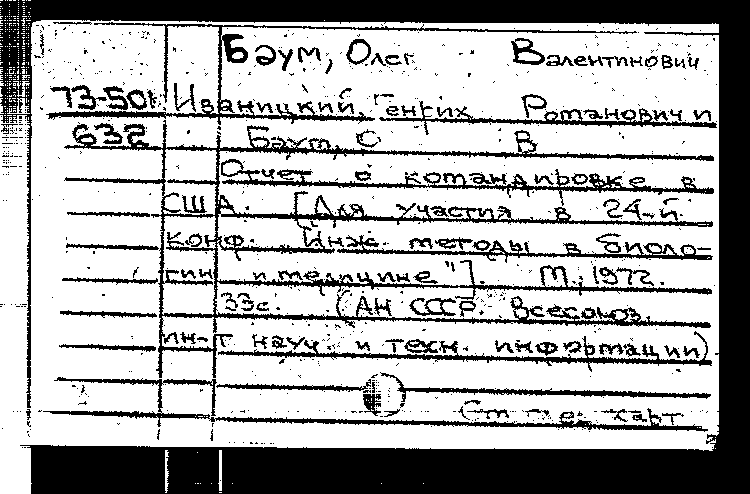 Баум, Олег Валентинович
73-501 Иваницкий, Генрих Романович и
632 Баум, О В
Отчет о командировке в
США. [Для участия в 24-й
конф. "Инж. методы в биоло-
гии и медицине"]. М., 1972.
33с. (АН СССР. Всесоюз.
ин-т науч. и техн. информации)
См карт